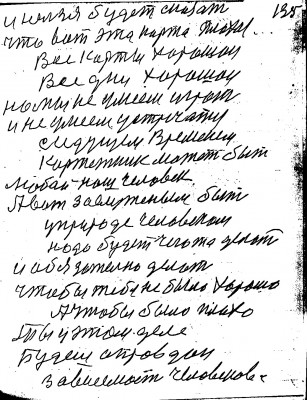 и нельзя будет сказат
135
что вот эта карта плохая
Все карты хорошаи
Все дни хорошаи
но мы не умеем играт
и не умеем устречату
следующем Временем
Картежник может быт
любой наш человек
А вот заслуженым быт
уприроде человеком
надо будет чегото делат
и обязателно делат
чтобы тебе не было хорошо
А чтобы было плохо
Ты у этом деле
Будеш оправдан
зависемост человекова